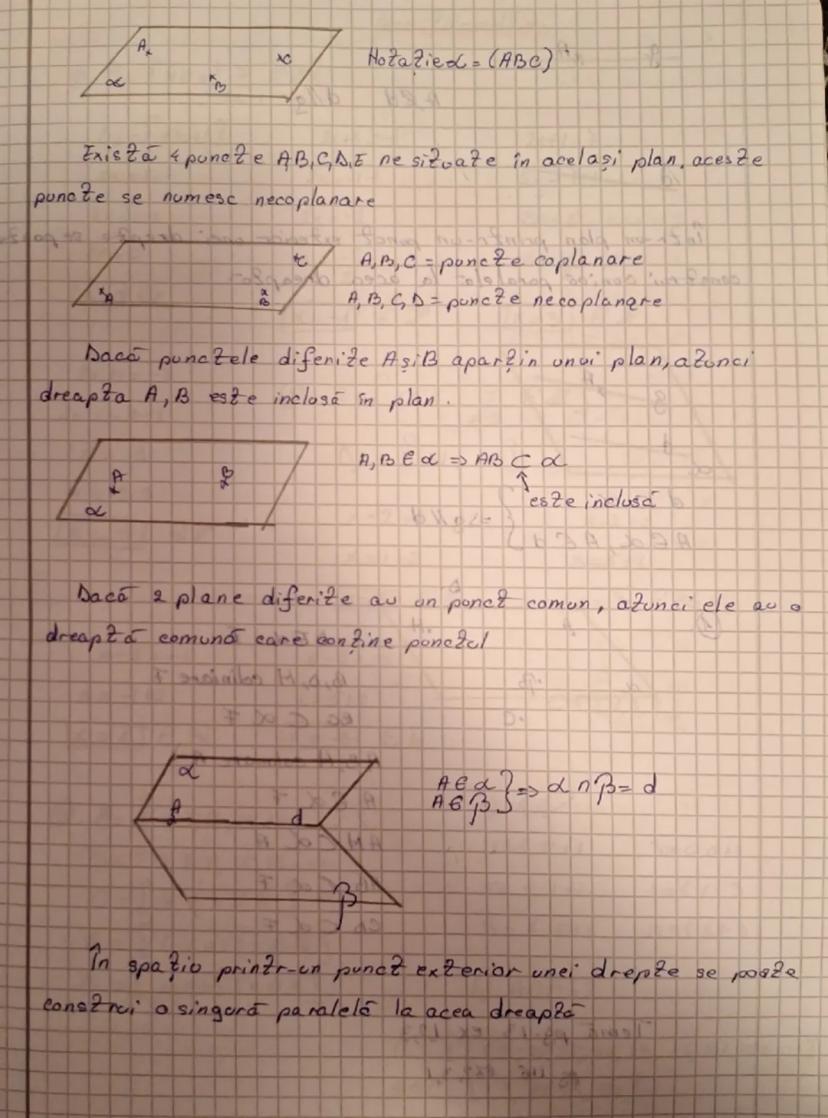 A
C
α
B
Notație α = (ABC)
Există 4 puncte A,B,C,D,E ne situate în același plan. aceste
puncte se numesc necoplanare
C
A
B
A,B,C = puncte coplanare
A,B,C,D = puncte necoplanare
Dacă punctele diferite A și B aparțin unui plan, atunci
dreapta A,B este inclusă în plan.
A
B
α
A,B ∈ α => AB ⊂ α
↑
este inclusă
Dacă 2 plane diferite au un punct comun, atunci ele au o
dreaptă comună care conține punctul
α
A
d
β
A ∈ α
A ∈ β } => α ∩ β = d
În spațiu printr-un punct exterior unei drepte se poate
construi o singură paralelă la acea dreaptă